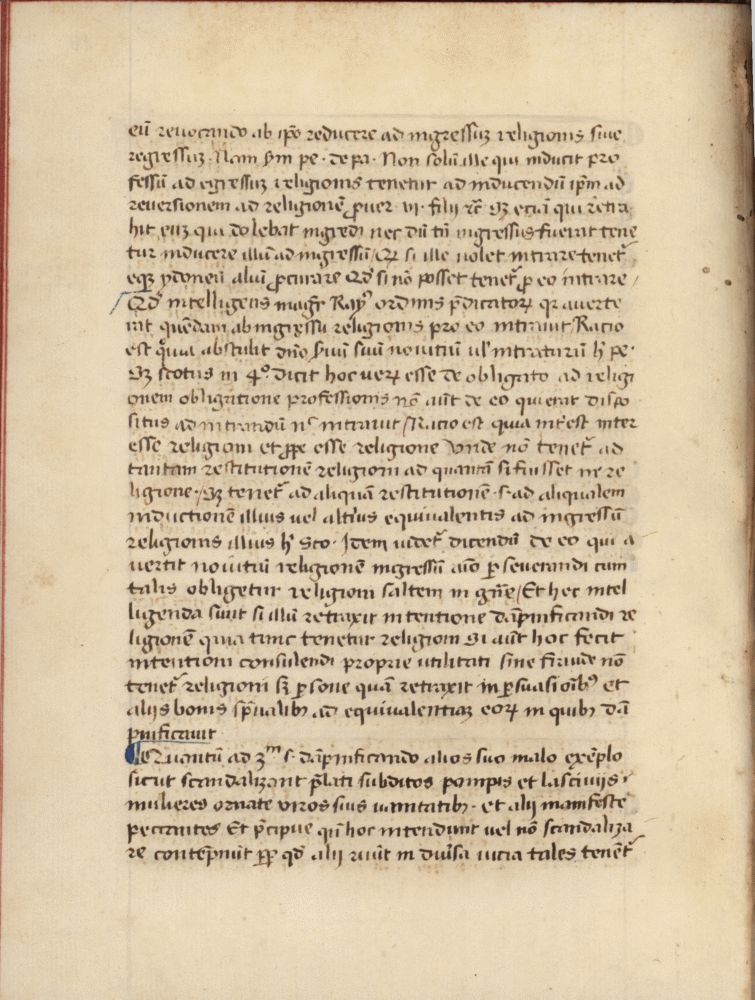 eū reuocando ab ip̄o reducere ad ingressuꝫ religionis siue
regressuꝫ. Nam s̄m pe. de pa. Non solū ille qui inducit pro
fessū ad egressuꝫ religionis tenetur ad inducendū ip̄m ad
reuersionem ad religionē ꝓuer. vi. fili rc̄ sꝫ eciā qui retra
hit euꝫ qui uolebat ingredi nec dū tn̄ ingressus fuerat tene
tur inducere illū ad ingressū / Qꝛ si ille nolet intrare tenet᷑
eq̄ ydoneū aliū ꝓcurare Qd̓ si nō posset tenet᷑ ꝓ eo intrare /
Qd̓ intelligens magr̄ Ray᷒ ordinis p̄dicatoꝝ qꝛ auerte
rat quēdam ab ingressu religionis pro eo intrauit Ratio
est quia abstulit dn̄o seruū suū nouitiū ul̓ intraturū h̓ pe.
Sꝫ scotus in 4º. dicit hoc veꝝ esse de obligato ad religi
onem obligatione professionis nō aūt de eo qui erat dispo
situs ad intrandū nc̄ intrauit / Ratio est quia int̓est inter
esse religioni et ꝓpe esse religione Unde nō tenet᷑ ad
tantam restitutionē religioni ad quantā si fuisset in re
ligione. Sꝫ tenet᷑ ad aliquā restitutionē .s. ad aliqualem
inductionē illius vel alt̓ius equiualentis ad ingressū
religionis illius h̓ Sco. Idem uidet᷑ dicendū de eo qui a
uertit nouitiū religionē ingressū aīo ꝑseuerandi cum
talis obligetur religioni saltem in gn̄e / Et hec intel
ligenda sunt si illū retraxit intentione dāpnificandi re
ligionē quia tunc tenetur religioni Si aūt hoc fecit
intentioni consulendi proprie utilitati sine fraude nō
tenet᷑ religioni sꝫ ꝑsone quā retraxit in ꝑsuasiōibꝫ et
alijs bonis sp̄ualibꝫ ad equiualentiaꝫ eoꝝ in quibꝫ dā
pnificauit
Quantū ad 3m̄ .s. dāpnificando alios suo malo exēplo
sicut scandalizant p̄lati subditos pompis et lasciuijs.
mulieres ornate viros suis uanitatibꝫ. et alij manifeste
peccantes Et p̄cipue qn̄ hoc intendunt vel nō scandaliza
re contēpnūt ꝓp̄ qd̓ alij ruūt in diu̓sa uicia tales tenēt᷑